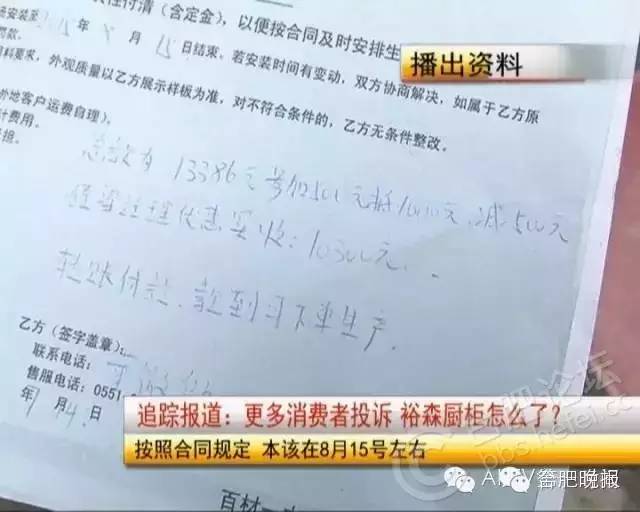 性付清（含定金），以便按合同及时安排生
安装至2015年8月15日结束，若安装时间有变动，双方协商解决，如属于乙方原
罚款。
播出资料
料要求，外观质量以乙方展示样板为准，对不符合条件的，乙方无条件整改。
地客户运费自理），
计费用。
担。
总款为13386元
500元抵1000元，减500元
经理优惠实收：10500元。
转账付款，款到可下单生产。
乙方（签字盖章）：
联系电话：
售服电话：0551-
年 月4日
追踪报道：更多消费者投诉 裕森厨柜怎么了？
按照合同规定 本该在8月15号左右
合肥论坛
bbs.hefei.cc
合肥晚报
百材